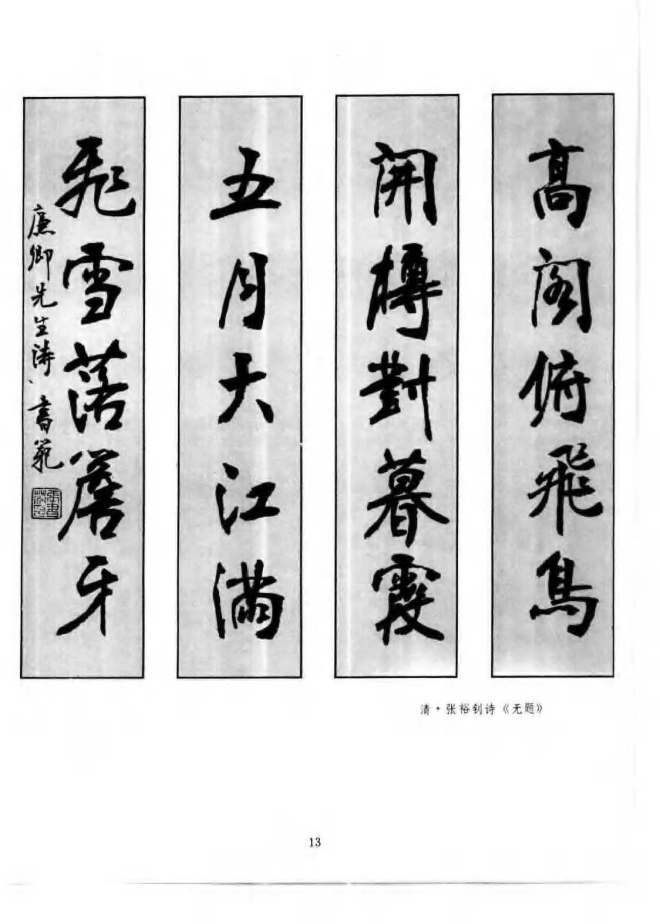 高閣俯飛鳥
開樽對暮霞
五月大江滿
飛雪落簷牙
廉卿先生詩書範
清·张裕钊诗《无题》
13